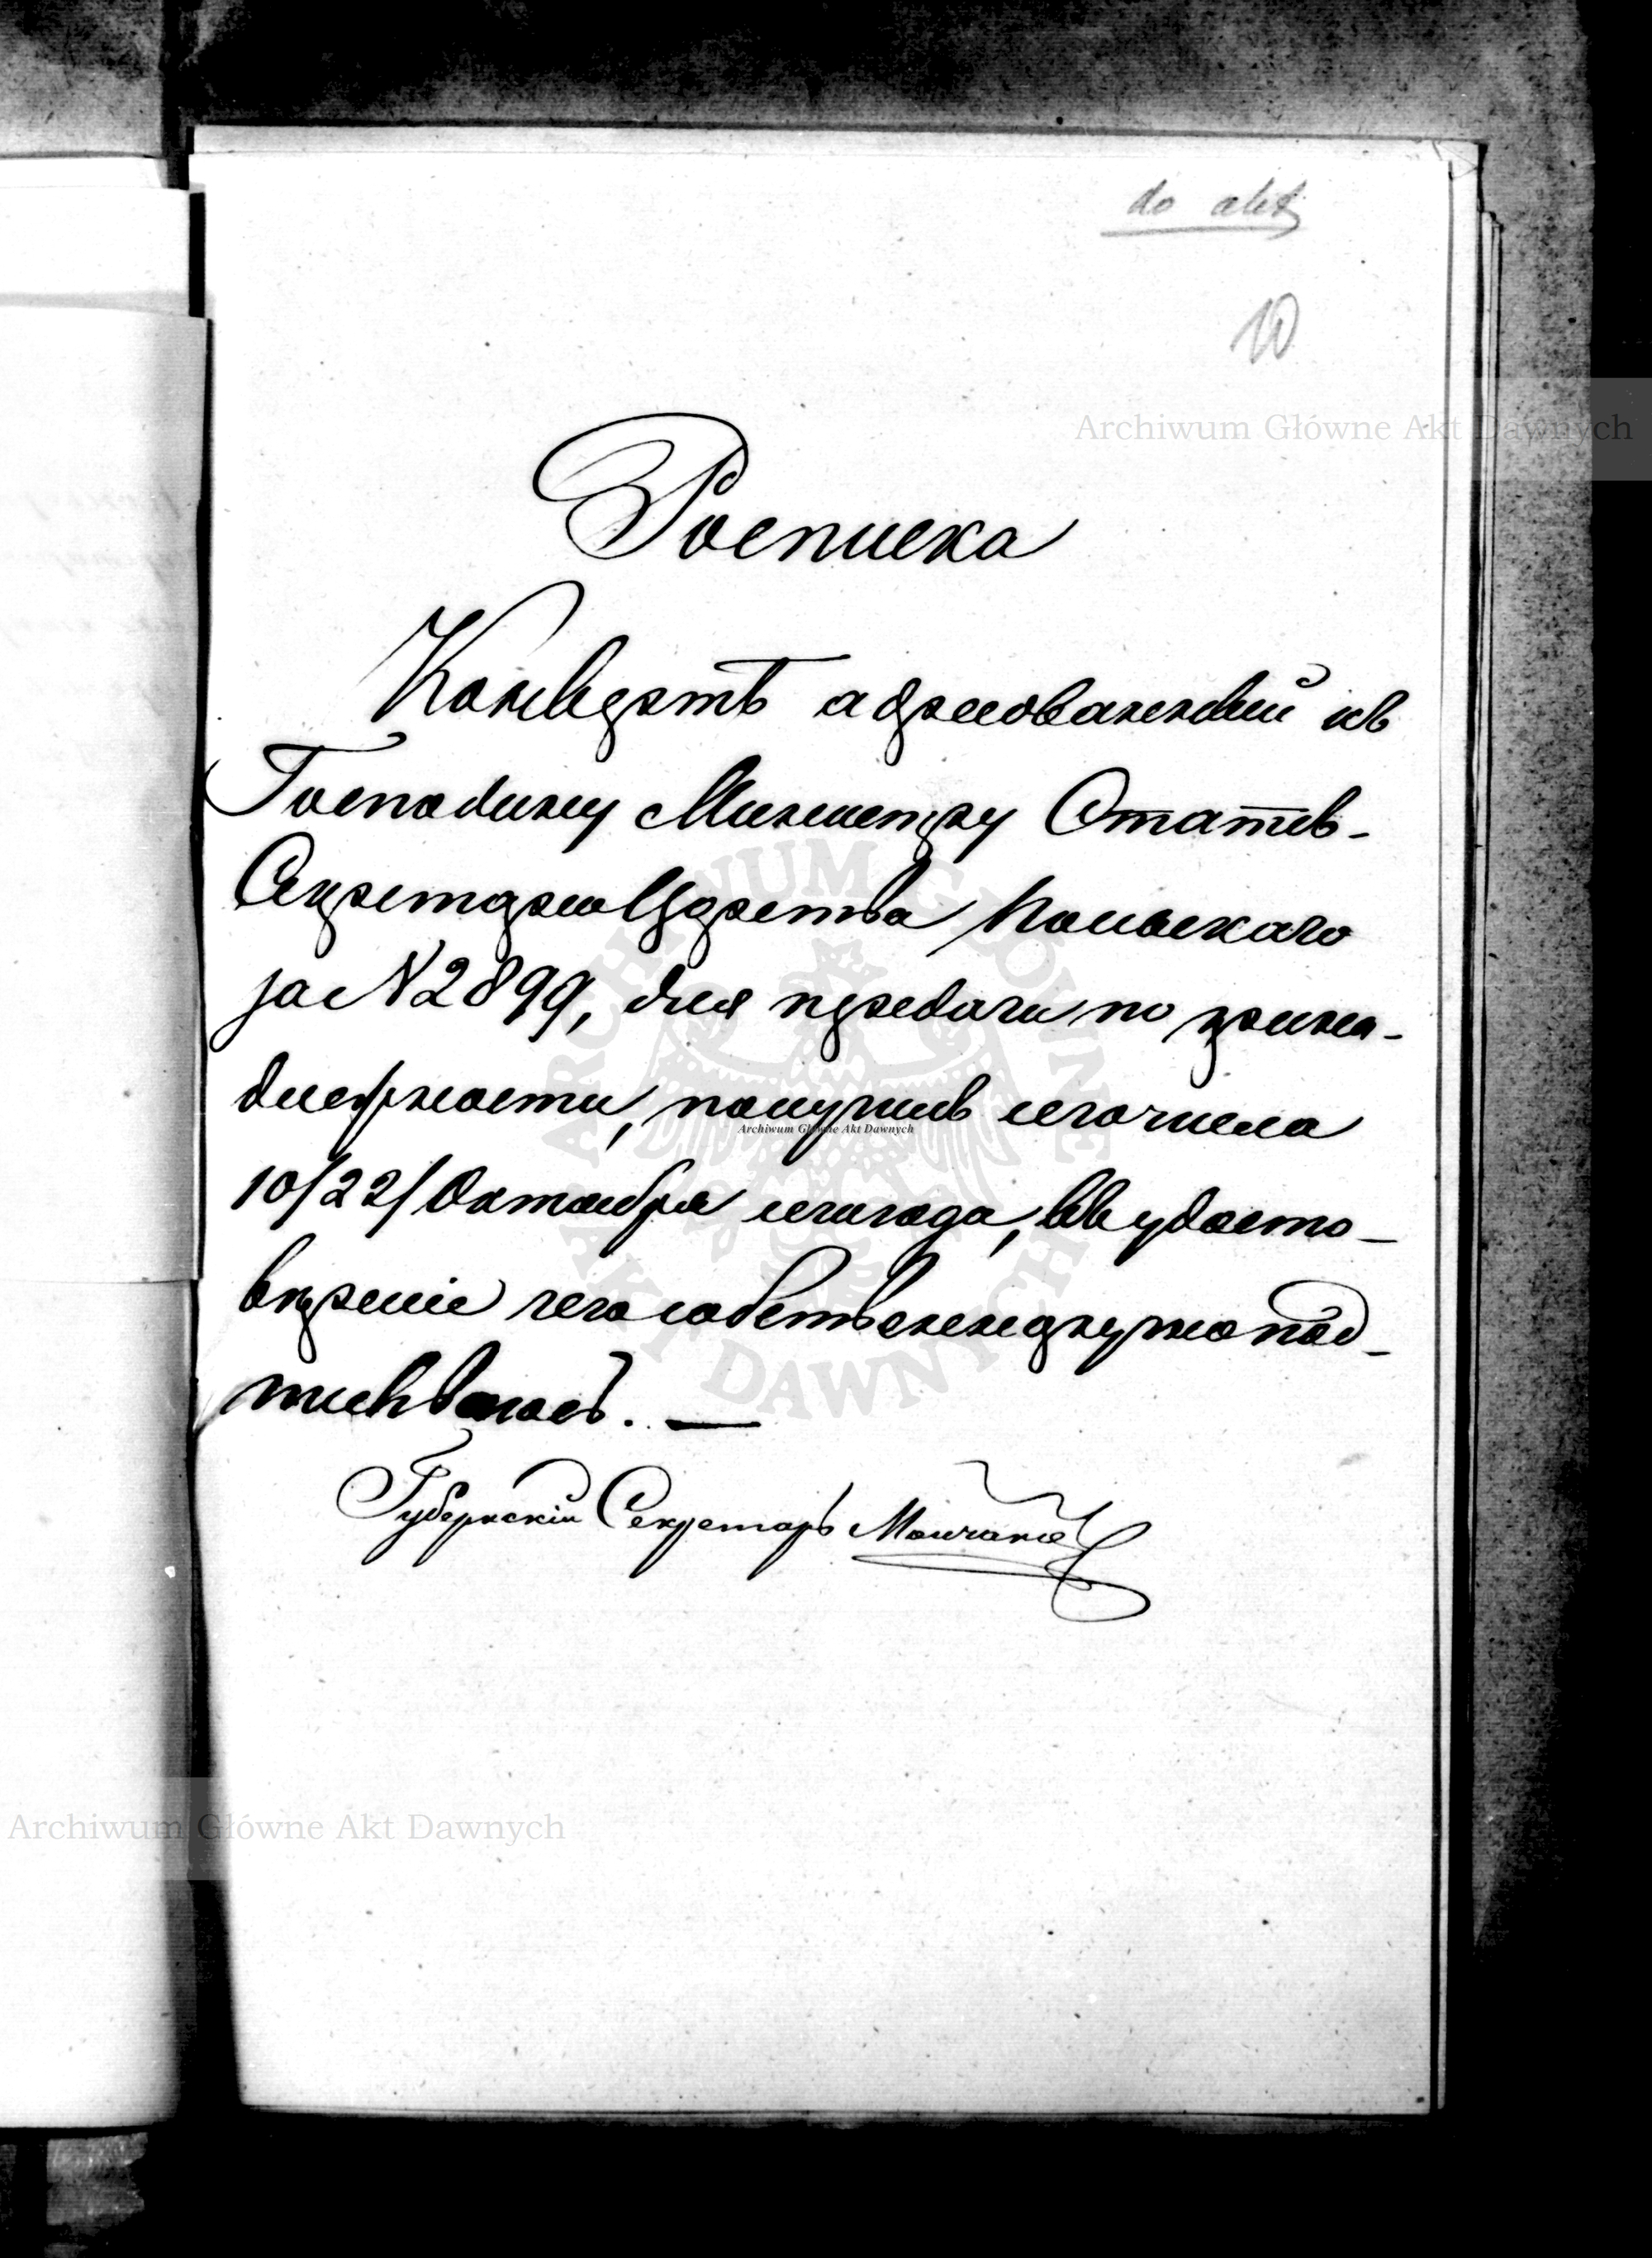 do akt
10
Archiwum Główne Akt Dawnych
Росписка
Конвертъ адресованный къ
Господину Министру Статсъ-
Секретарю Царства Польскаго
за N 2899, для передачи по прина-
длежности, получилъ сего числа
10/22/ Октября сего года, въ удосто-
вереніе чего собственноручно под-
писываюсь. —
Губернскій Секретарь
Archiwum Główne Akt Dawnych
ARCHIWUM GŁÓWNE AKT DAWNYCH
Archiwum Główne Akt Dawnych